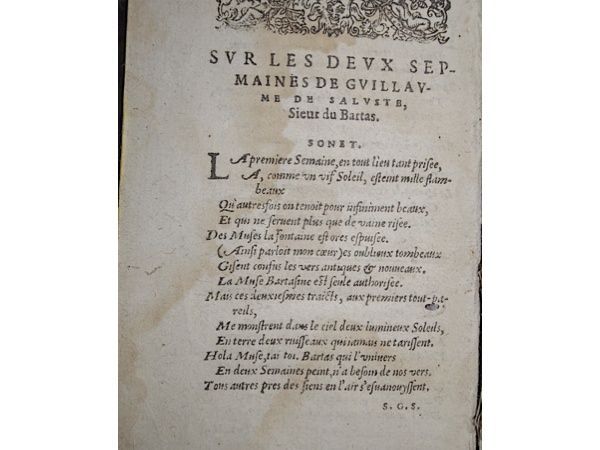 SVR LES DEVX SEP-
MAINES DE GVILLAV-
ME DE SALVSTE,
Sieur du Bartas.
SONET.
LA premiere Semaine, en tout lieu tant prisee,
A, comme vn vif Soleil, esteint mille flam-
beaux
Qu'autresfois on tenoit pour infiniment beaux,
Et qui ne seruent plus que de vaine risee.
Des Muses la fontaine est ores espuisee.
(Ainsi parloit mon cœur) es oublieux tombeaux
Gisent confus les vers antiques & nouueaux.
La Muse Bartasine est seule authorisee.
Mais ces deuxiesmes traicts, aux premiers tout-pa-
reils,
Me monstrent dans le ciel deux lumineux Soleils,
En terre deux ruisseaux qui iamais ne tarissent.
Hola Muse, tai toi. Bartas qui l'vniuers
En deux Semaines peint, n'a besoin de nos vers.
Tous autres pres des siens en l'air s'esuanouyssent.
S. G. S.